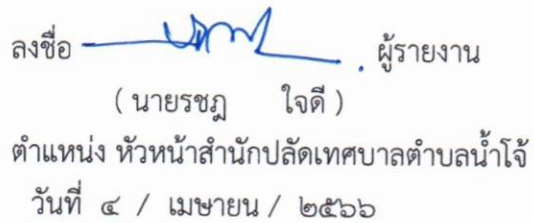 ลงชื่อ ผู้รายงาน
( นายรชฎ ใจดี )
ตำแหน่ง หัวหน้าสำนักปลัดเทศบาลตำบลน้ำโจ้
วันที่ ๔ / เมษายน / ๒๕๖๖